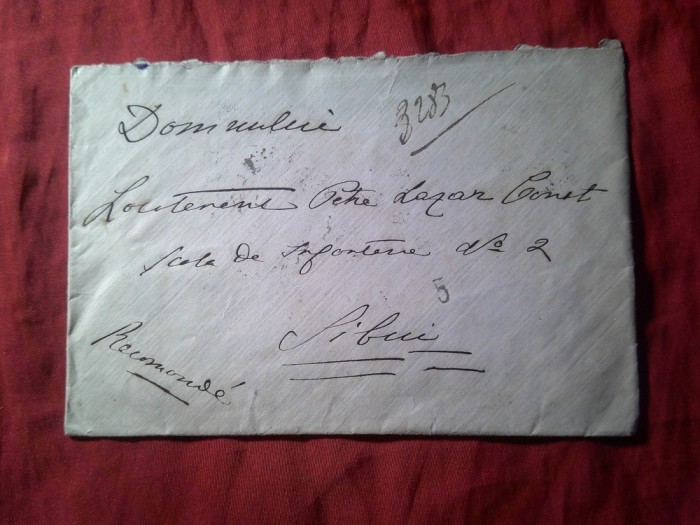 Domnului
3283
Loutenent Petre Lazar Const
Scola de Infanterie No 2
5
Sibiu
Recomandé